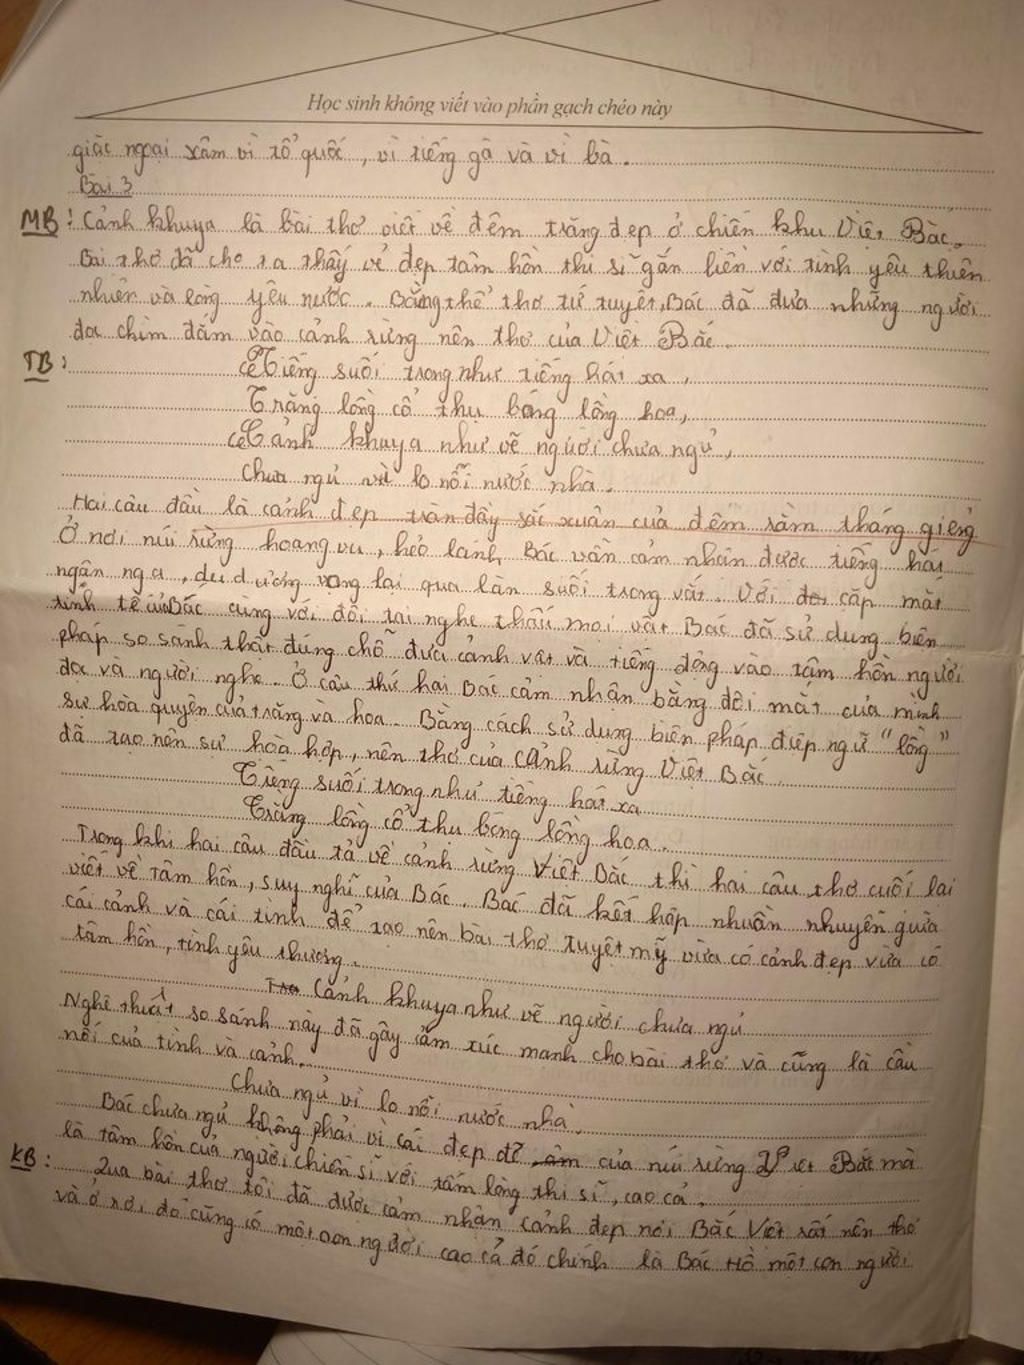 Học sinh không viết vào phần gạch chéo này
giặc ngoại xâm vì tổ quốc, vì tiếng gà và vì bà.
Bài 3
MB: Cảnh khuya là bài thơ viết về đêm trăng đẹp ở chiến khu Việt Bắc.
Bài thơ đã cho ta thấy vẻ đẹp tâm hồn thi sĩ gắn liền với tình yêu thiên
nhiên và lòng yêu nước. Bằng thể thơ tứ tuyệt, Bác đã đưa những người
đọc chìm đắm vào cảnh rừng nên thơ của Việt Bắc.
TB: "Tiếng suối trong như tiếng hát xa,
Trăng lồng cổ thụ bóng lồng hoa,
Cảnh khuya như vẽ người chưa ngủ,
Chưa ngủ vì lo nỗi nước nhà.
Hai câu đầu là cảnh đẹp tràn đầy sắc xuân của đêm rằm tháng giêng
Ở nơi núi rừng hoang vu, hẻo lánh Bác vẫn cảm nhận được tiếng hát
ngân nga, du dương vọng lại qua làn suối trong vắt. Với cặp mắt
tinh tế của Bác cùng với đôi tai nghe thấu mọi vật Bác đã sử dụng biện
pháp so sánh thật đúng chỗ đưa cảnh vật và tiếng động vào tâm hồn người
đọc và người nghe. Ở câu thứ hai Bác cảm nhận bằng đôi mắt của mình
sự hòa quyện của trăng và hoa. Bằng cách sử dụng biện pháp điệp ngữ "lồng"
đã tạo nên sự hòa hợp, nên thơ của cảnh rừng Việt Bắc.
Tiếng suối trong như tiếng hát xa
Trăng lồng cổ thụ bóng lồng hoa.
Trong khi hai câu đầu tả về cảnh rừng Việt Bắc thì hai câu thơ cuối lại
viết về tâm hồn, suy nghĩ của Bác. Bác đã kết hợp nhuần nhuyễn giữa
cái cảnh và cái tình để tạo nên bài thơ tuyệt mỹ vừa có cảnh đẹp vừa có
tâm hồn, tình yêu thương.
Cảnh khuya như vẽ người chưa ngủ
Nghệ thuật so sánh này đã gây cảm xúc mạnh cho bài thơ và cũng là cầu
nối của tình và cảnh.
Chưa ngủ vì lo nỗi nước nhà.
Bác chưa ngủ không phải vì cái đẹp đẽ của núi rừng Việt Bắc mà
là tâm hồn của người chiến sĩ với tấm lòng thi sĩ, cao cả.
KB: Qua bài thơ tôi đã được cảm nhận cảnh đẹp nơi Bắc Việt rất nên thơ
và ở nơi đó cũng có một con người cao cả đó chính là Bác Hồ một con người